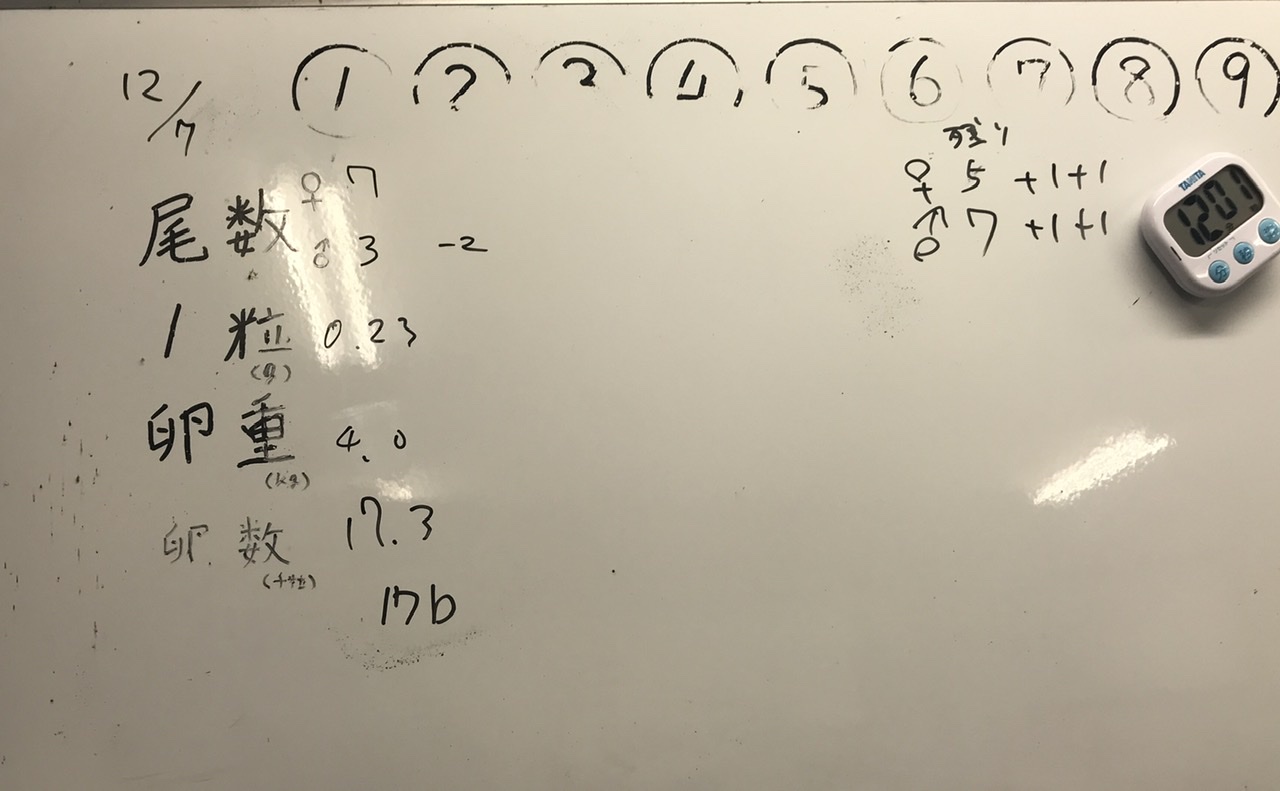 12/7 ① ② ③ ④ ⑤ ⑥ ⑦ ⑧ ⑨
残り
♀ 5 +1+1
♂ 7 +1+1
TANITA
12:01
尾数 ♀ 7
♂ 3 -2
1粒 0.23
(g)
卵重 4.0
(kg)
卵数 17.3
(千粒)
17b